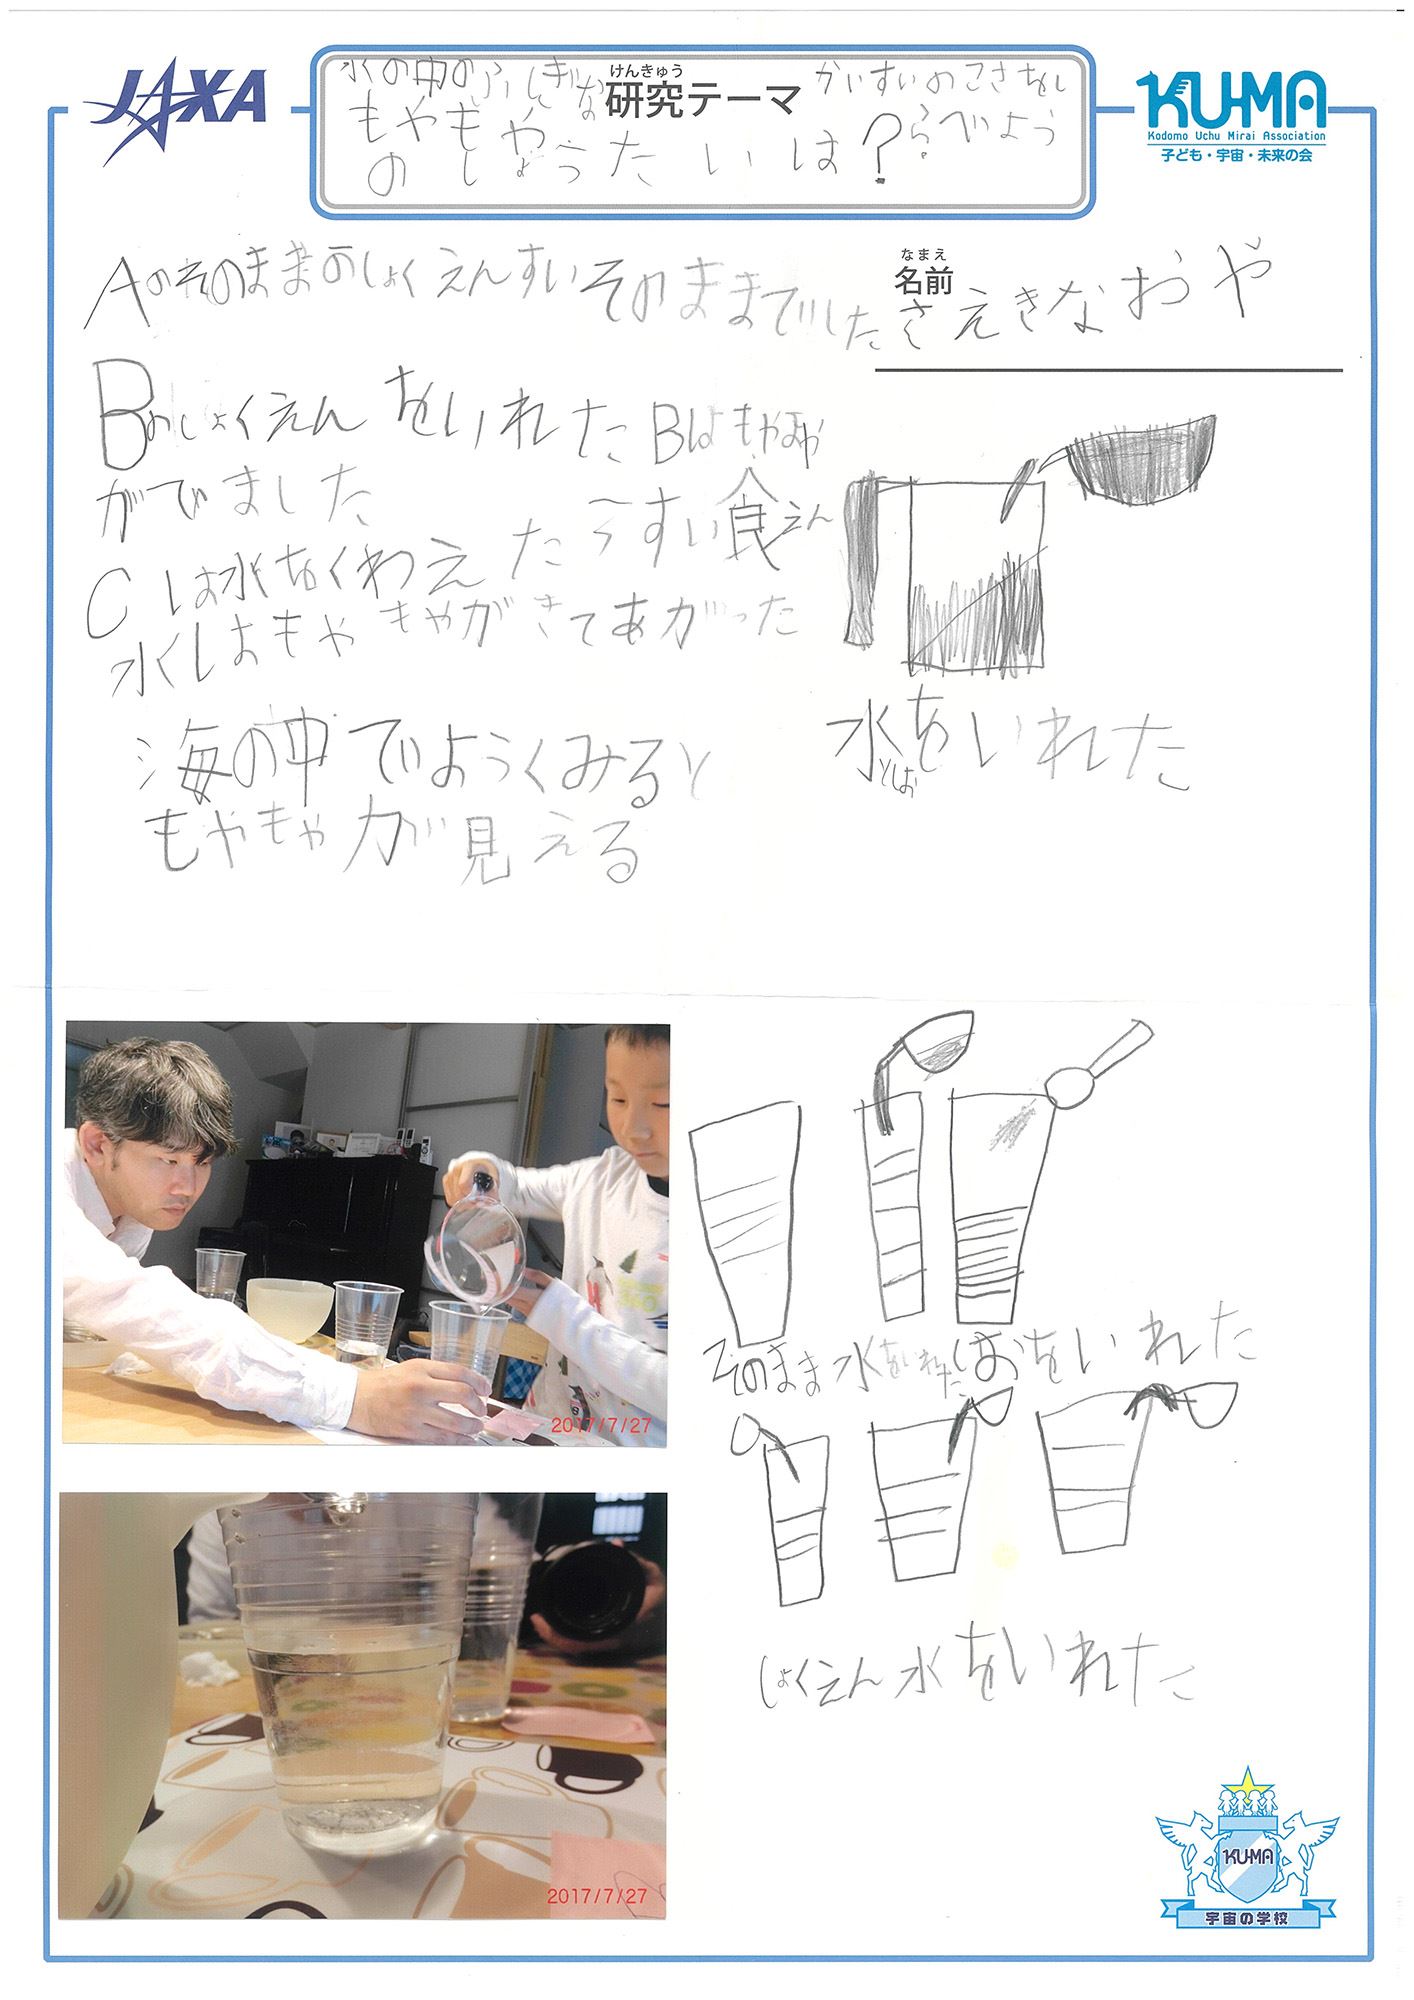 JAXA
水の中のふしぎな
もやもや
のしょうたいは?
けんきゅう
研究テーマ
かいすいのこさをし
らべよう
KUMA
Kodomo Uchu Mirai Association
子ども・宇宙・未来の会
なまえ
名前
さえきなおや
Aのそのままのしょくえんすいそのままでした
Bのしょくえんをいれた Bはもやもや
がでました
Cは水をくわえた うすい食えん
水はもやもやがきてあがった
海の中でようくみると
もやもやが見える
水をいれた
としお
そのまま 水をいれた しおをいれた
しょくえん水をいれた
2017/7/27
2017/7/27
KUMA
宇宙の学校